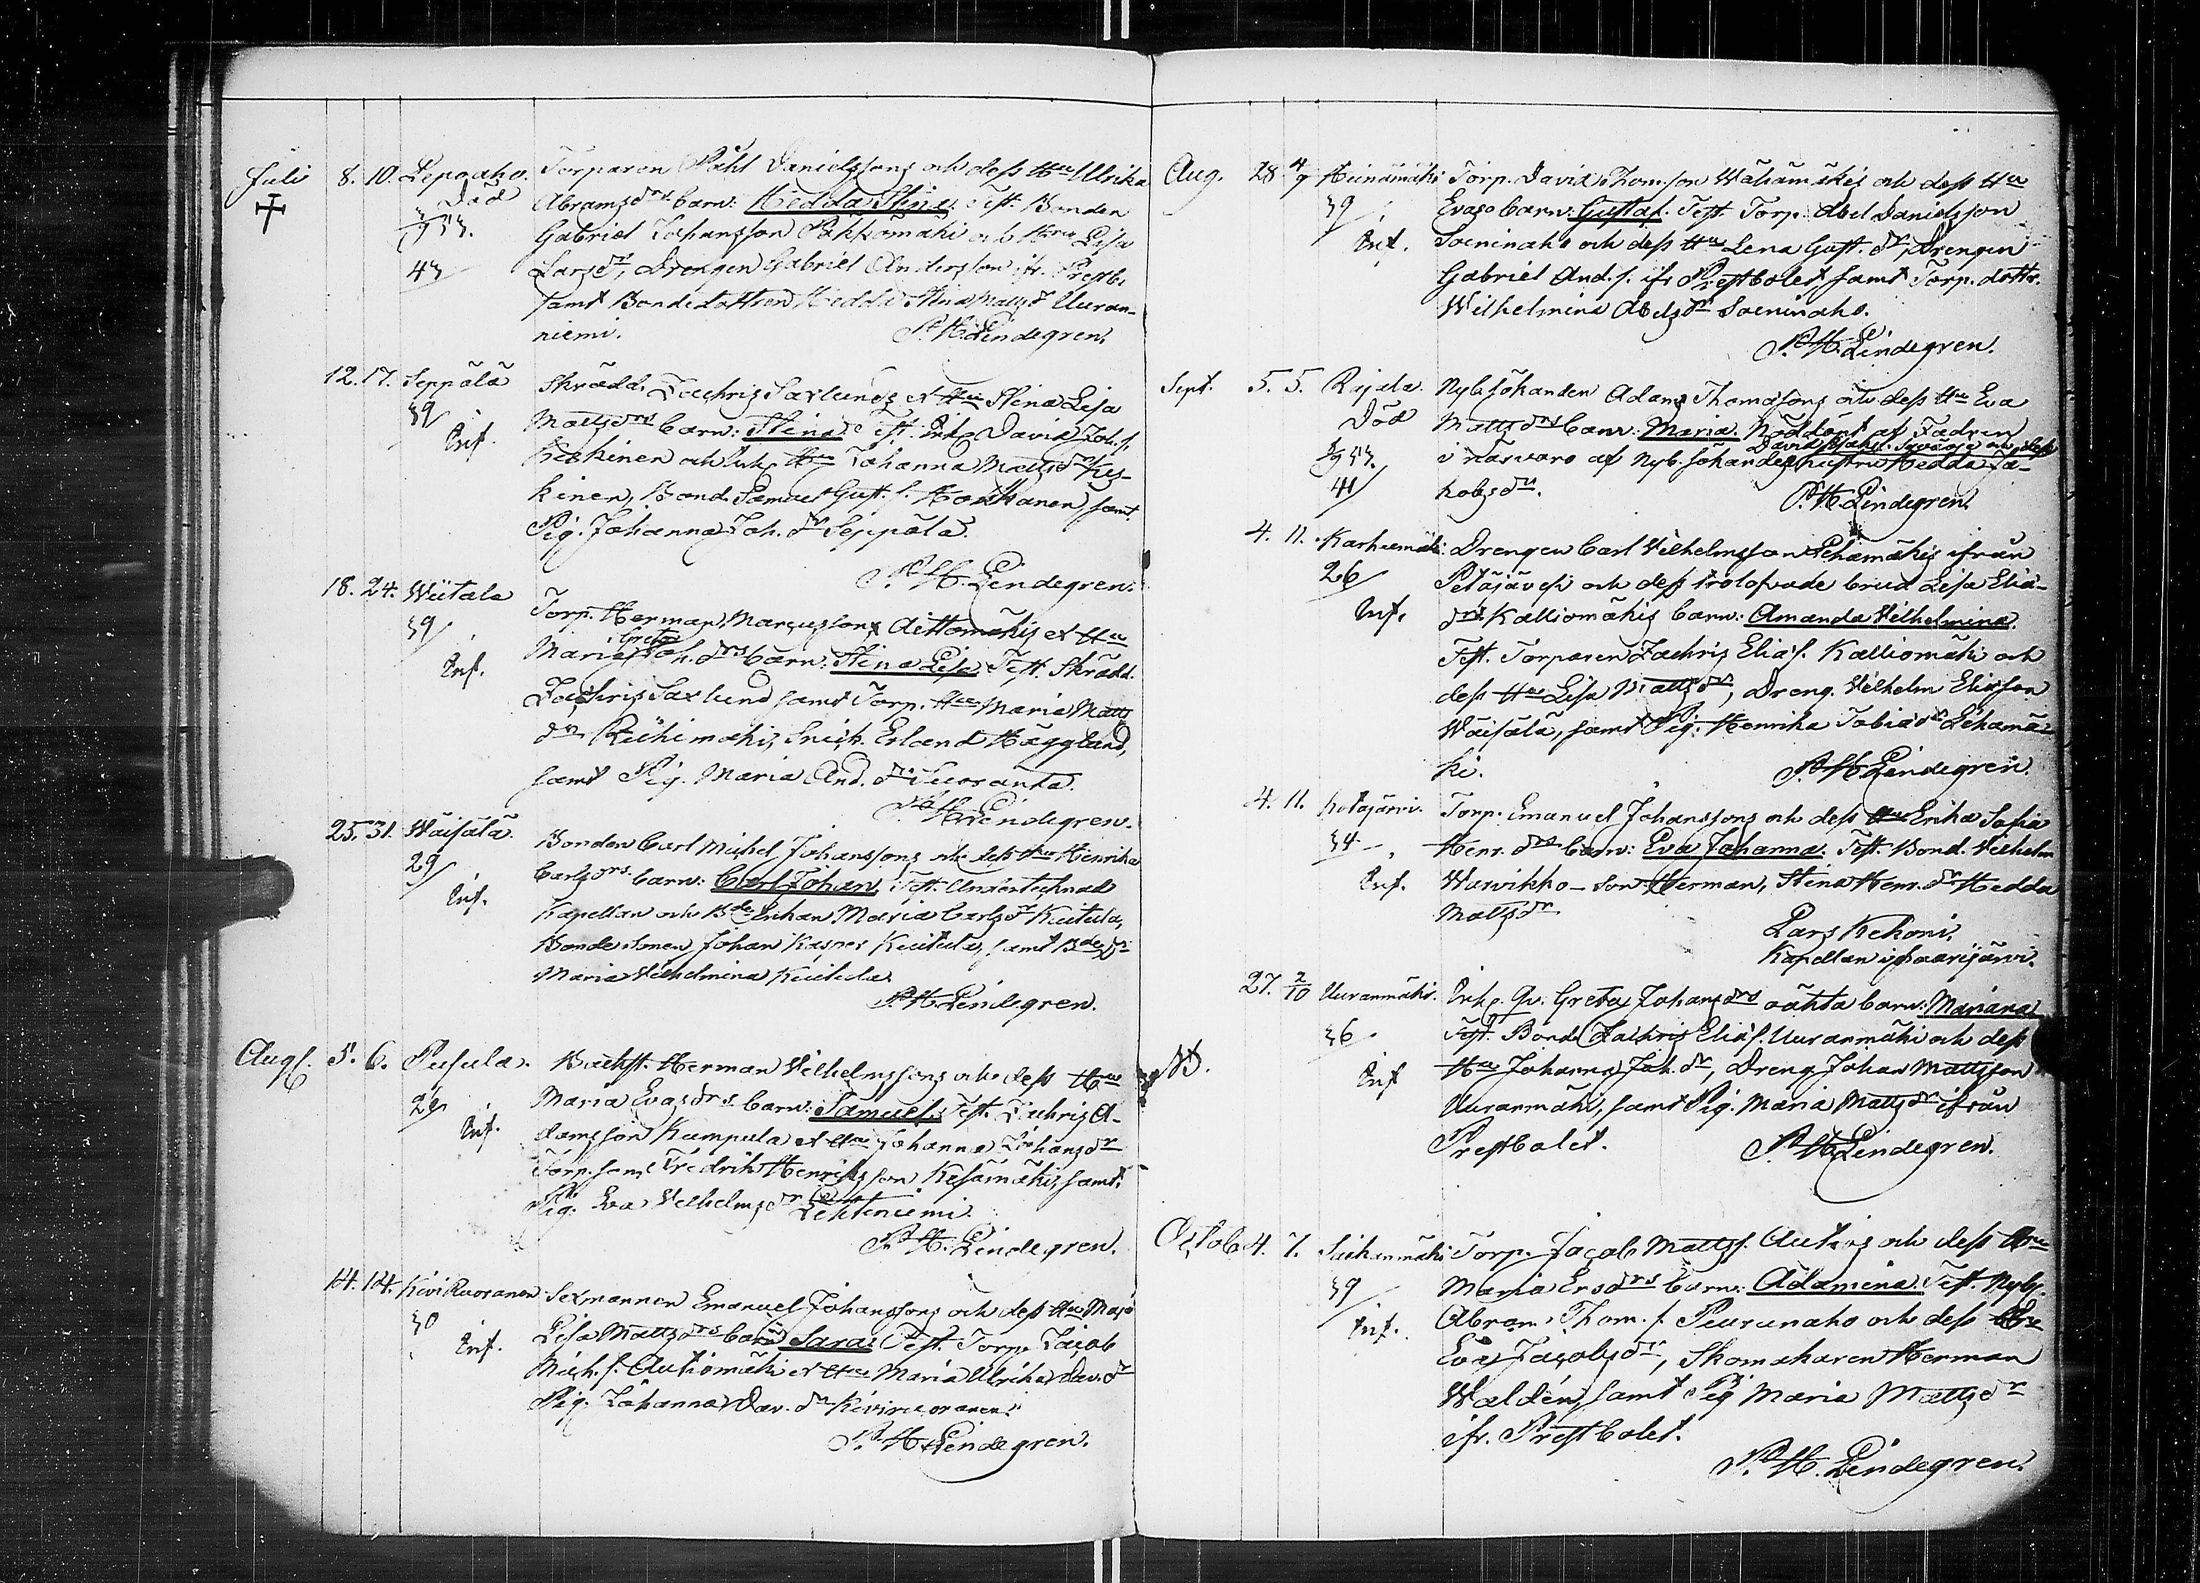 Juli 8. 10. Lepoaho. Torparen Påhl Danielssons och dess Hu Ulrika
Död Abramsdrs barn: Hedda Stina. Test. Bonden
Gabriel Johansson Pökkömäki och Hru Lisa
43 Larsdr, Drengen Gabriel Andersson ifr. Prestb.
samt Bondedottren Hedda Stina Mattsdr Uuran-
niemi. P. H. Lindegren.
12. 17. Seppälä Skrädd. Zachris Saxlunds et Hu Stina Lisa
39 Mattsdrs barn: Stina. Test. Enkl. David Joh. s.
Inf. Keskinen och Hu Johanna Mattsdr Kes-
kinen, Bond. Samuel Gust. s. samt
Pig. Johanna Joh. dr Seppälä.
P. H. Lindegren.
18. 24. Wiitala Torp. Herman Marcussons Aittomäkis et Hu
39 Maria Greta Joh. drs barn: Stina Lisa. Test. Skrädd.
Inf. Zachris Saxlund samt Torp. Hu Maria Matts
dr Riihimäki, Snick. Erland Hägglund,
samt Pig. Maria And. dr Luoranta.
P. H. Lindegren.
25. 31. Wäisälä Bonden Carl Michel Johanssons och dess Hu Henrika
29 Carlsdrs barn: Carl Johan. Test. Undertecknad
Inf. Kapellan och Bde Enkan Maria Carlsdr Kuitula,
Bondesonen Johan Kasper Kuitula, samt Bdedr
Maria Wilhelmina Kuitula.
P. H. Lindegren.
Aug. 5. 6. Pusula. Backst. Herman Wilhelmssons och dess Hru
29 Maria Evasdrs barn: Samuel. Test. Zachris A-
Inf. damsson Kumpula et Hu Johanna Johansdr
Torp. son Fredrik Henriksson Kesämäki, samt
Pig. Eva Wilhelmsdr Lehtoniemi.
P. H. Lindegren.
14. 14. Kiviruoranen Sexmannen Emanuel Johanssons och dess Hu Maja
30 Lisa Mattsdrs barn Sara. Test. Torp. Jacob
Inf. Mich. s. Autiomäki et Hu Maria Ulrika Dav. dr
Pig. Johanna Dav. dr Kiviruoranen.
P. H. Lindegren.
Aug. 28 4/9 Heinämäki Torp. David Thomsson Wähämäkis och dess Hu
39 Evas barn: Gustaf. Test. Torp. Abel Danielsson
Inf. Soeninaho och dess Hu Lena Gust. dr, Drengen
Gabriel And. s. ifr Prestbolet samt Torp. dottr.
Wilhelmina Abelsdr Soeninaho.
P. H. Lindegren.
Sept. 5. 5. Nybsökanden Adam Thomassons och dess Hu Eva
Död Mattsdrs barn: Maria. Nöddöpt af Fadren
i närvaro af Nyb. sökanden David och dess hustru Hedda Ja-
41 kobsdr. P. H. Lindegren.
4. 11. Karhumäki: Drengen Carl Wilhelmsson ifrån
26 Petäjävesi och dess trolofvade brud Lisa Elia-
Inf. drs Kalliomäkis barn: Amanda Wilhelmina.
Test. Torparen Zachris Elias. Kalliomäki och
dess Hu Lisa Mattsdr, Dreng. Wilhelm Eliasson
Wäisälä, samt Pig. Henrika Tobiadr Lehamä-
ki. P. H. Lindegren.
4. 11. Kotajärvi. Torp. Emanuel Johanssons och dess Hu Erika Sofia
34 Henr. drs barn: Eva Johanna. Test. Bond. Wilhelm
Inf. Warvikko - son Herman, Stina Henr. dr Hedda
Mattsdr
Lars Kekoni,
Kapellan i Saarijärvi.
27. 2/10 Uuranmäki. Enk. Qv. Greta Johansdrs oäkta barn: Mariana
36 Test. Bond. Zachris Elias. Uuranmäki och dess
Inf Hu Johanna Joh. dr, Dreng Johan Mattsson
Uuranmäki, samt Pig. Maria Mattsdr ifrån
Prestbolet. P. H. Lindegren.
Octob. 4. 7. Torp. Jacob Matts. Autios och dess Hu
39 Maria Ersdrs barn: Adamina. Test. Nybs.
Inf. Abram Thom. s. Peurunaho och dess Hu
Eva Jacobsdr, Skomakaren Herman
Waldén, samt Pig Maria Mattsdr
ifr. Prestbolet.
P. H. Lindegren.